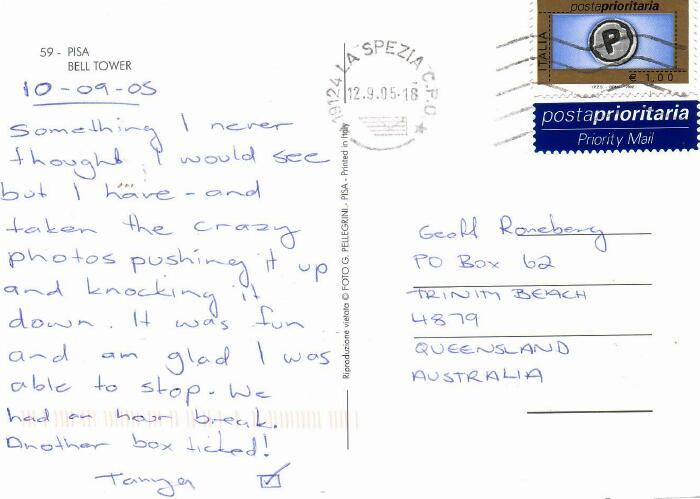 59 - PISA
BELL TOWER
10-09-05
Something I never
thought I would see
but I have - and
taken the crazy
photos pushing it up
and knocking it
down. It was fun
and am glad I was
able to stop. We
had an hour break.
Another box ticked!
Tanya ☑
Riproduzione vietata © FOTO G. PELLEGRINI - PISA - Printed in Italy
19124 LA SPEZIA C.P.O
12.9.05-18
postaprioritaria
ITALIA
P
€ 1,00
postaprioritaria
Priority Mail
Geoff Roneberg
PO Box 62
TRINITY BEACH
4879
QUEENSLAND
AUSTRALIA